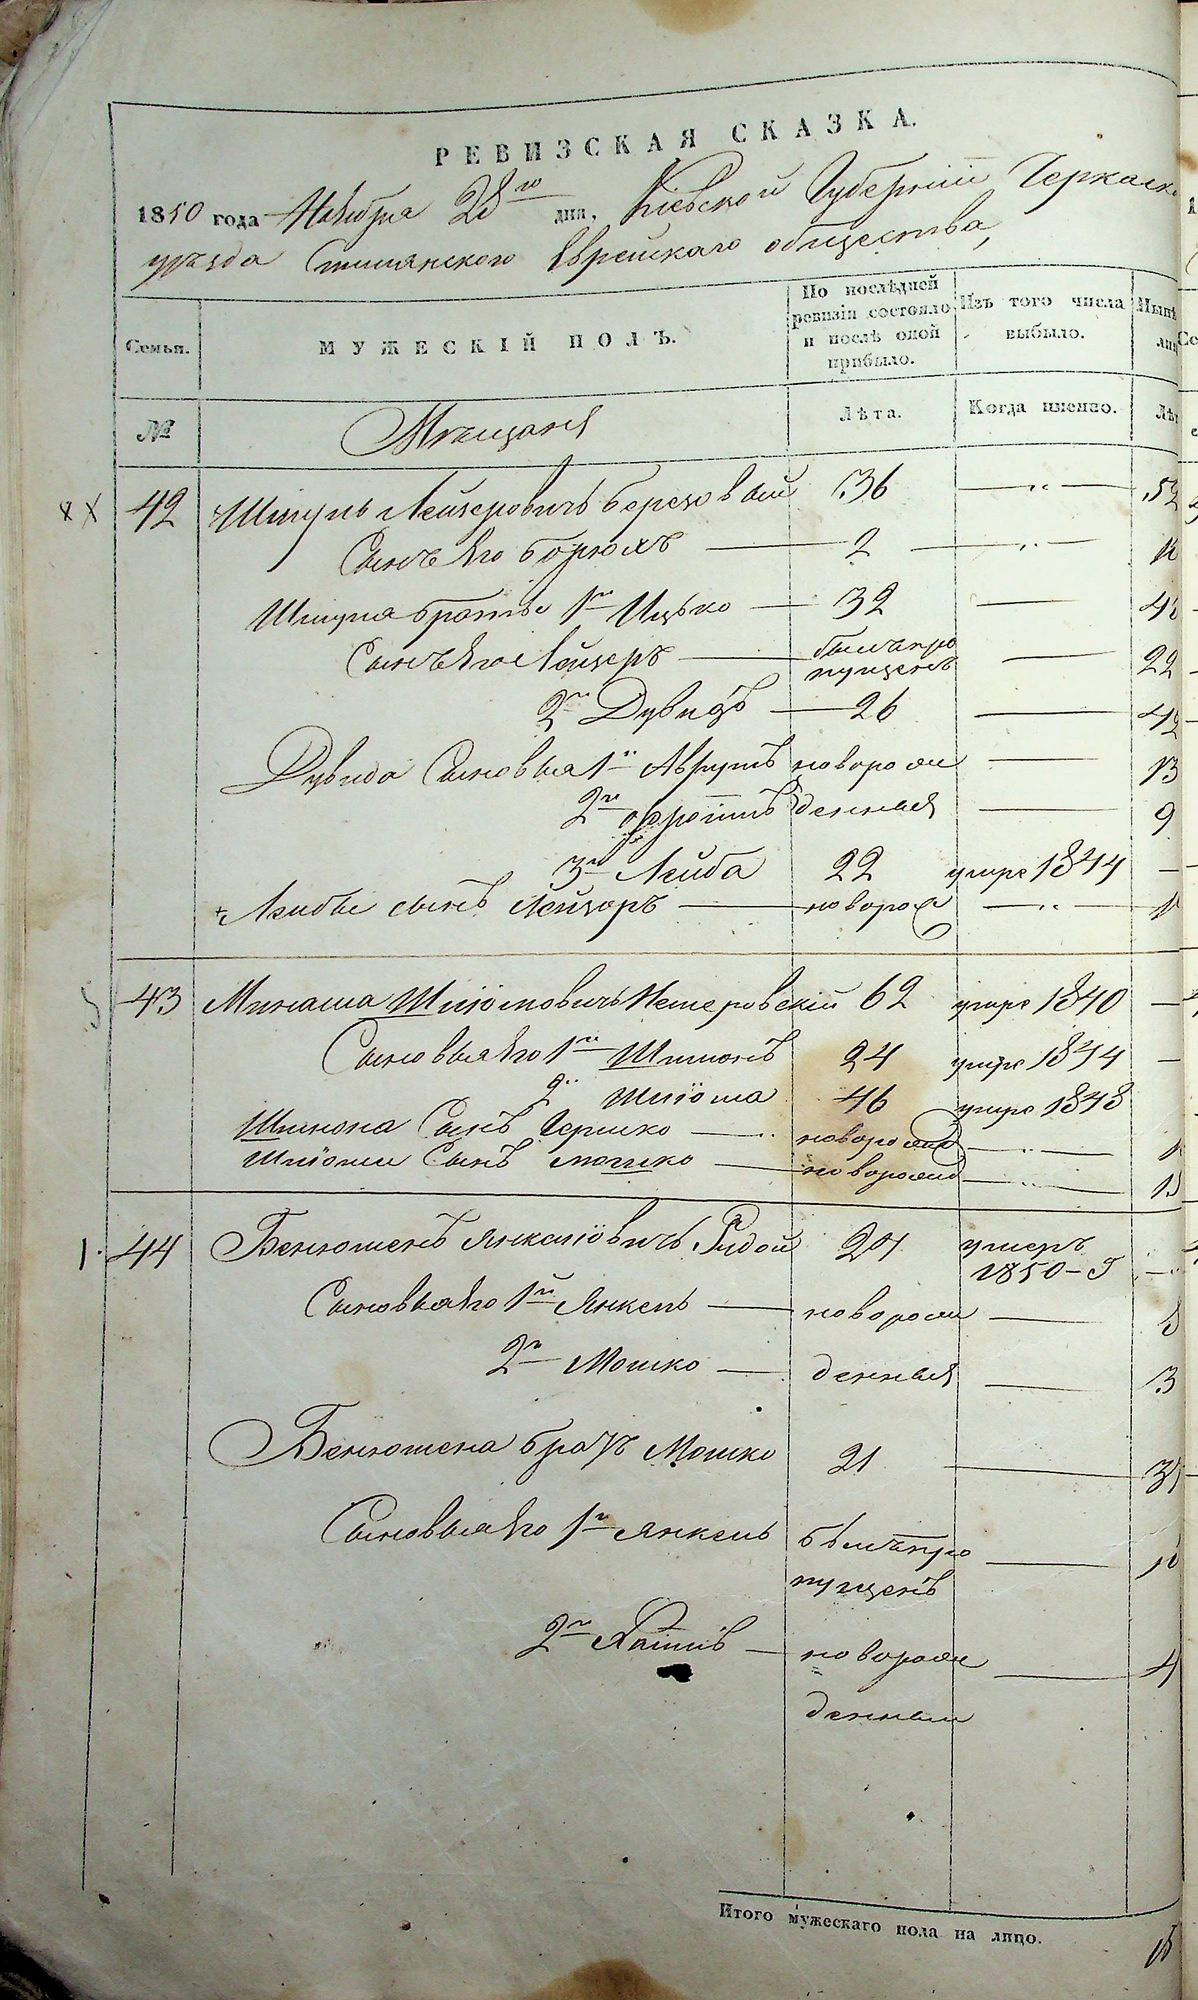 РЕВИЗСКАЯ СКАЗКА.
1850 года Ноября 28го дня, Кіевской Губерніи Черкаск
уѣзда Смилянского Еврейскаго общества,
Семьи.
МУЖЕСКІЙ ПОЛЪ.
По послѣдней ревизіи состояло и послѣ оной прибыло.
Изъ того числа выбыло.
Нынѣ
№
Мѣщаня
Лѣта.
Когда именно.
42 Шмуль Лейзеровичъ Береховый 36 — „ — 52
Сынъ Его Борюхъ — 2 — „ —
Шмуля братья 1й Ицько — 32 — 48
Сынъ Его Лейзеръ — былъ пропущенъ — 22
2й Дувидъ — 26 — 42
Дувида Сыновья 1й Аврумъ новорож — 13
2й Фроимъ денныя — 9
3й Лейба 22 умре 1844 —
Лейбы сынъ Лейзоръ — новорож — „ —
43 Минаша Шліомовичъ 62 умре 1840 —
Сыновья Его 1й Шимонъ 24 умре 1844 —
2й Шліома 46 умре 1848
Шимона Сынъ Гершко — „ новорожд — „ —
Шліомы Сынъ Мошко — новорожд — „ — 15
1. 44 Бенюменъ Янкеліовичъ Рудой 24 умеръ 1850-
Сыновья Его 1й Янкель — новорож —
2й Мошко — денныя — 3
Бенюмена братъ Мошко 21 —
Сыновья Его 1й Янкель былъ пропущенъ —
2й Хаимъ — новорож — 4
денныи
Итого мужескаго пола на лицо.